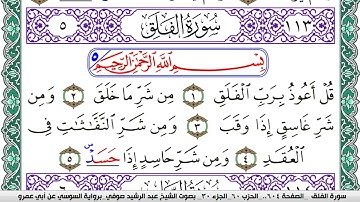 ٥ سُورَةُ الفَلَقِ ١١٣
بِسْمِ اللَّهِ الرَّحْمَٰنِ الرَّحِيمِ
قُلْ أَعُوذُ بِرَبِّ الْفَلَقِ ١ مِن شَرِّ مَا خَلَقَ ٢ وَمِن
شَرِّ غَاسِقٍ إِذَا وَقَبَ ٣ وَمِن شَرِّ النَّفَّٰثَٰتِ فِى
الْعُقَدِ ٤ وَمِن شَرِّ حَاسِدٍ إِذَا حَسَدَ ٥
سورة الفلق _الصفحة ٦٠٤_ الحزب ٦٠_ الجزء ٣٠_ بصوت الشيخ عبد الرشيد صوفي_ برواية السوسي عن أبي عمرو